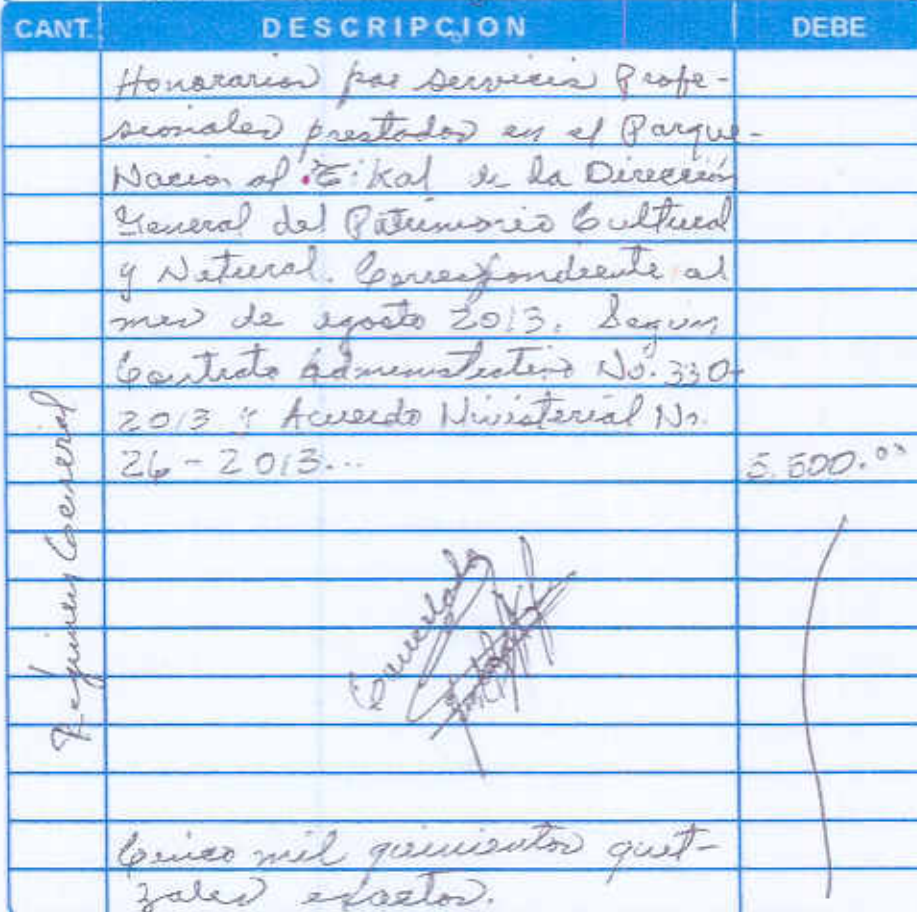 CANT. DESCRIPCION DEBE
Honorarios por servicios Profe-
sionales prestados en el Parque-
Nacional Tikal de la Dirección
General del Patrimonio Cultural
y Natural. Correspondiente al
mes de agosto 2013. Segun
Contrato Administrativo No. 330-
2013 y Acuerdo Ministerial No.
26-2013... 5.500.00
Regimen General
Cancelado
Cinco mil quinientos quet-
zales exactos.